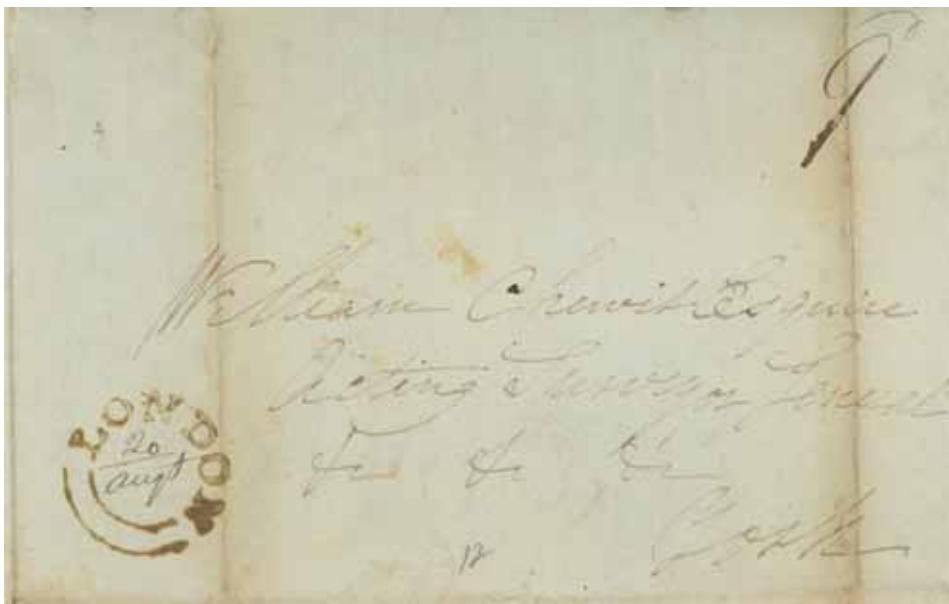 9
William Chewitt Esquire
Acting Surveyor General
&c &c &c
York
LONDON
20
Augt
12